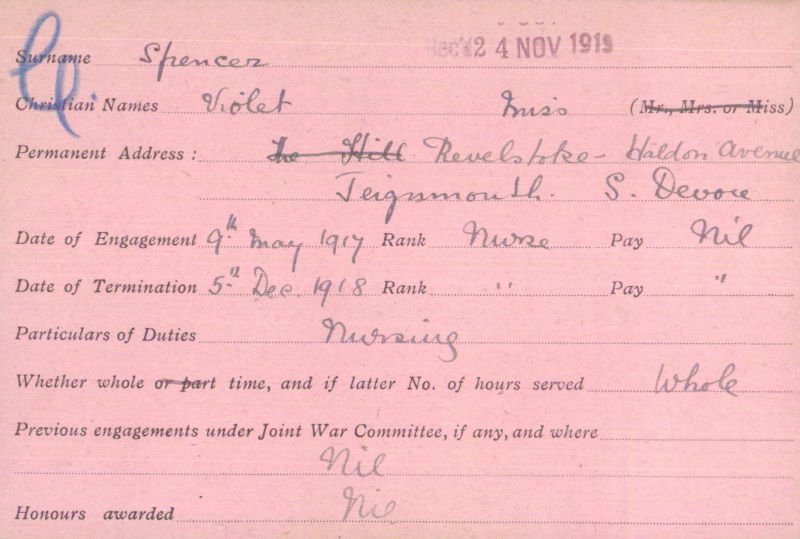 Rec'd 24 NOV 1919
Surname Spencer
Christian Names Violet Miss (Mr., Mrs. or Miss)
Permanent Address : The Hill Revelstoke - Haldon Avenue
Teignmouth. S. Devon
Date of Engagement 9th May 1917 Rank Nurse Pay Nil
Date of Termination 5th Dec. 1918 Rank " Pay "
Particulars of Duties Nursing
Whether whole or part time, and if latter No. of hours served Whole
Previous engagements under Joint War Committee, if any, and where
Nil
Honours awarded Nil